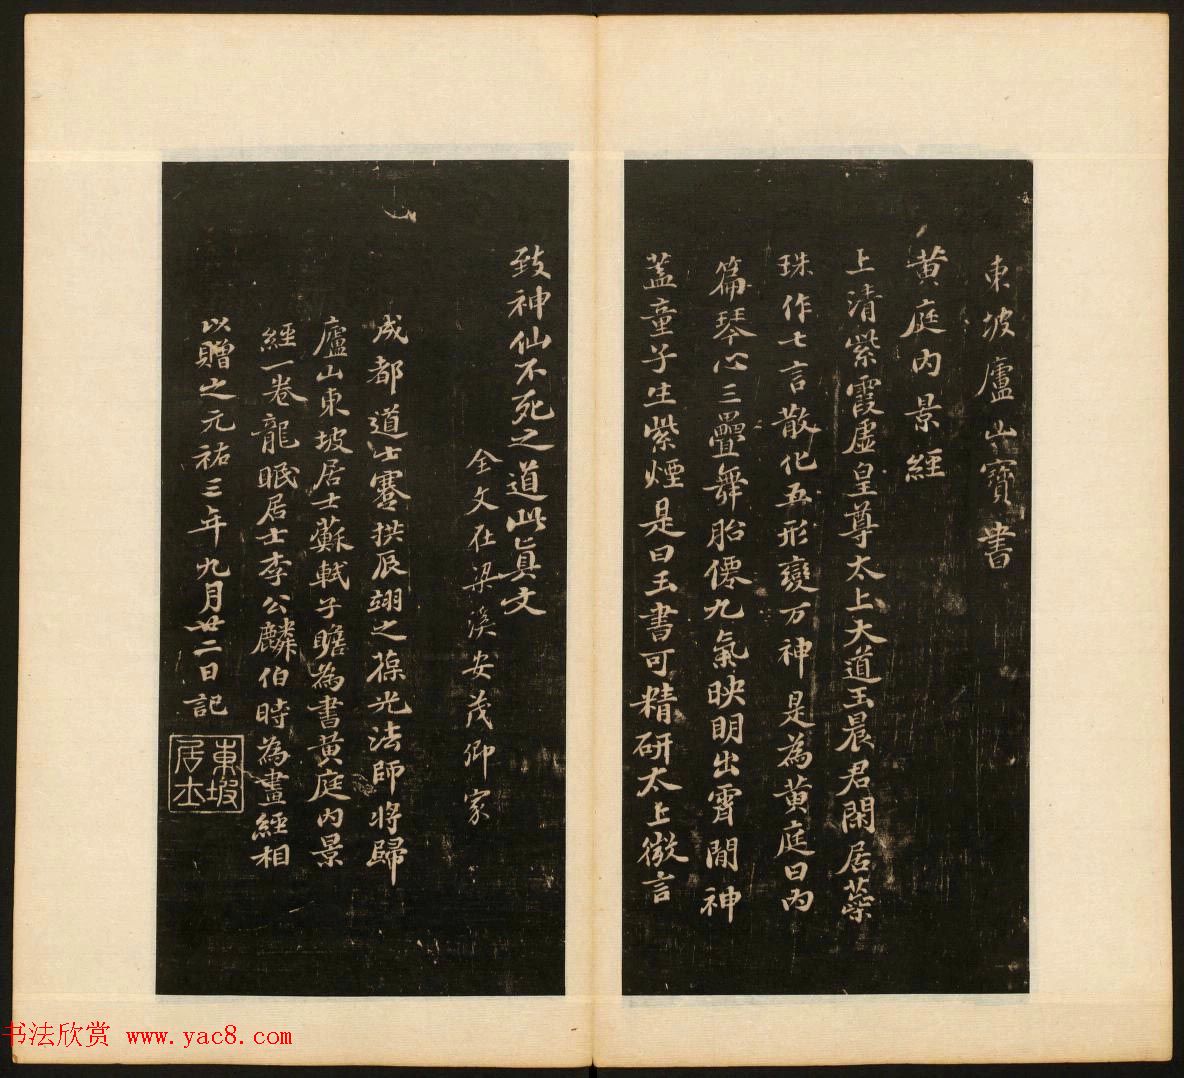 東坡廬山寶書
黄庭内景經
上清紫霞虛皇尊太上大道玉晨君閑居蘂
珠作七言散化五形變万神是為黄庭曰内
篇琴心三疊舞胎僊九氣映明出霄間神
蓋童子生紫煙是曰玉書可精研太上微言
致神仙不死之道此真文
全文在梁溪安茂卿家
成都道士蹇拱辰翊之葆光法師將歸
廬山東坡居士蘇軾子瞻為書黄庭内景
經一卷龍眠居士李公麟伯時為畫經相
以贈之元祐三年九月廿二日記
東坡
居士
书法欣赏 www.yac8.com